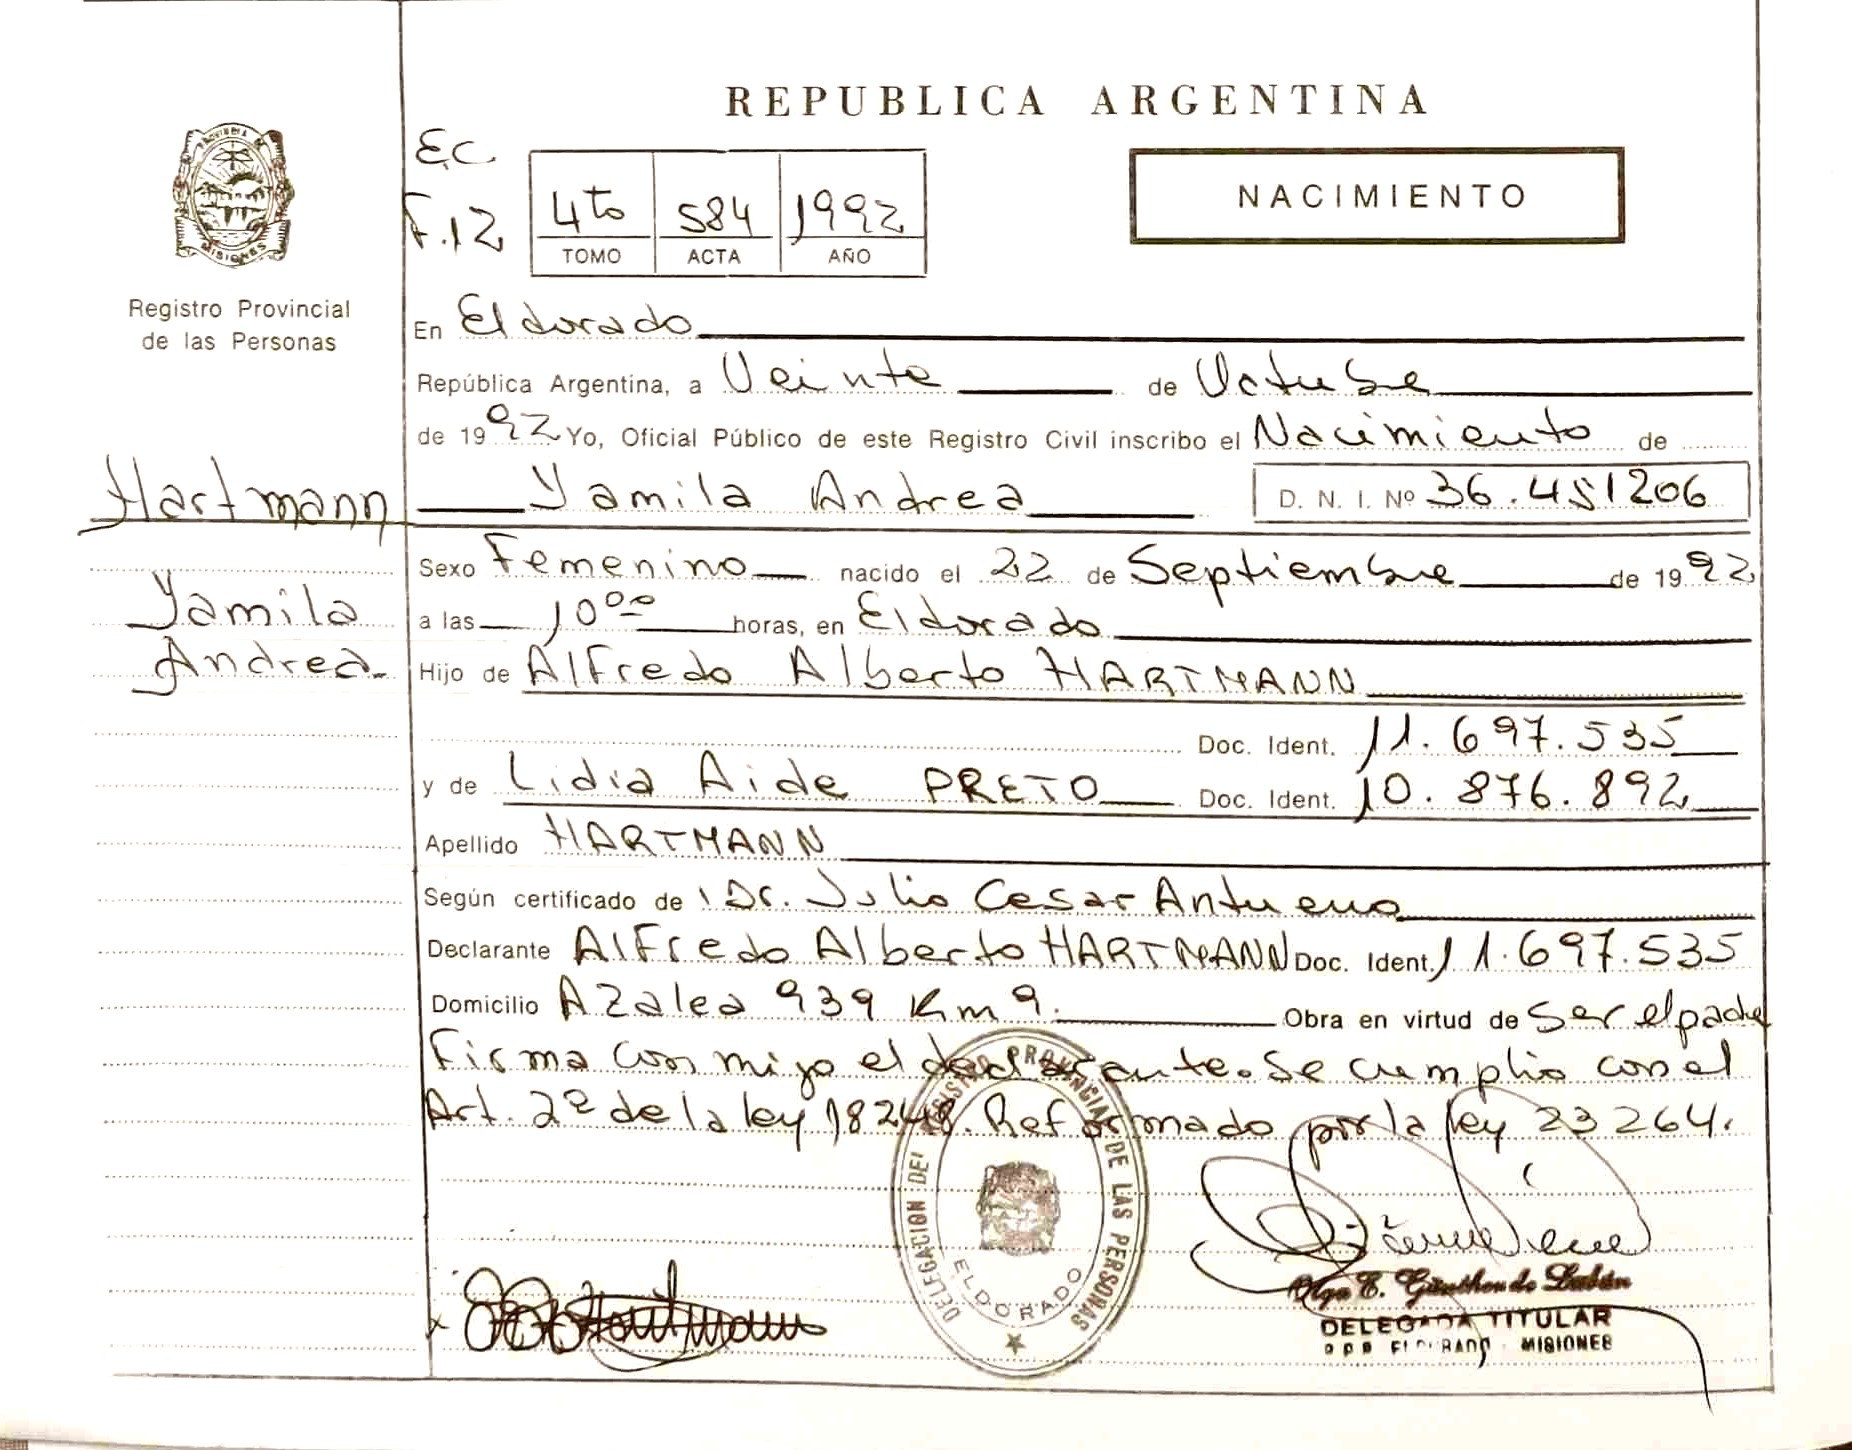 REPUBLICA ARGENTINA
PROVINCIA DE
MISIONES
Registro Provincial
de las Personas
E.C
F.12
4to 584 1992
TOMO ACTA AÑO
NACIMIENTO
En Eldorado
República Argentina, a Veinte de Octubre
de 1992 Yo, Oficial Público de este Registro Civil inscribo el Nacimiento de
Hartmann
Yamila Andrea D. N. I. Nº 36.451206
Sexo Femenino nacido el 22 de Septiembre de 1992
Yamila
a las 10 00 horas, en Eldorado
Andrea.
Hijo de Alfredo Alberto HARTMANN
Doc. Ident. 11.697.535
y de Lidia Aide PRETO Doc. Ident. 10.876.892
Apellido HARTMANN
Según certificado de Dr. Julio Cesar
Declarante Alfredo Alberto HARTMANN Doc. Ident. 11.697.535
Domicilio Azalea 939 Km 9. Obra en virtud de ser el padre
Firma conmigo el declarante. Se cumplio con el
Art. 2º de la ley 18248. Reformado por la ley 23264.
DELEGACION DEL REGISTRO PROVINCIAL DE LAS PERSONAS
ELDORADO
Olga E. Günther de
DELEGADA TITULAR
ELDORADO - MISIONES